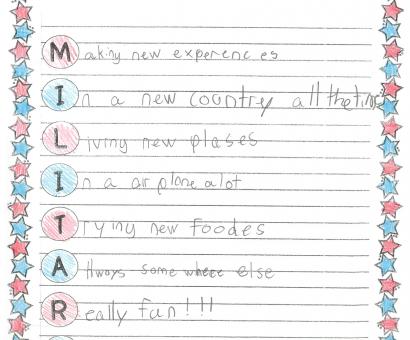 Making new experences
In a new country all the time
Living new plases
In a air plane a lot
Trying new foodes
Always some where else
Really fun!!!